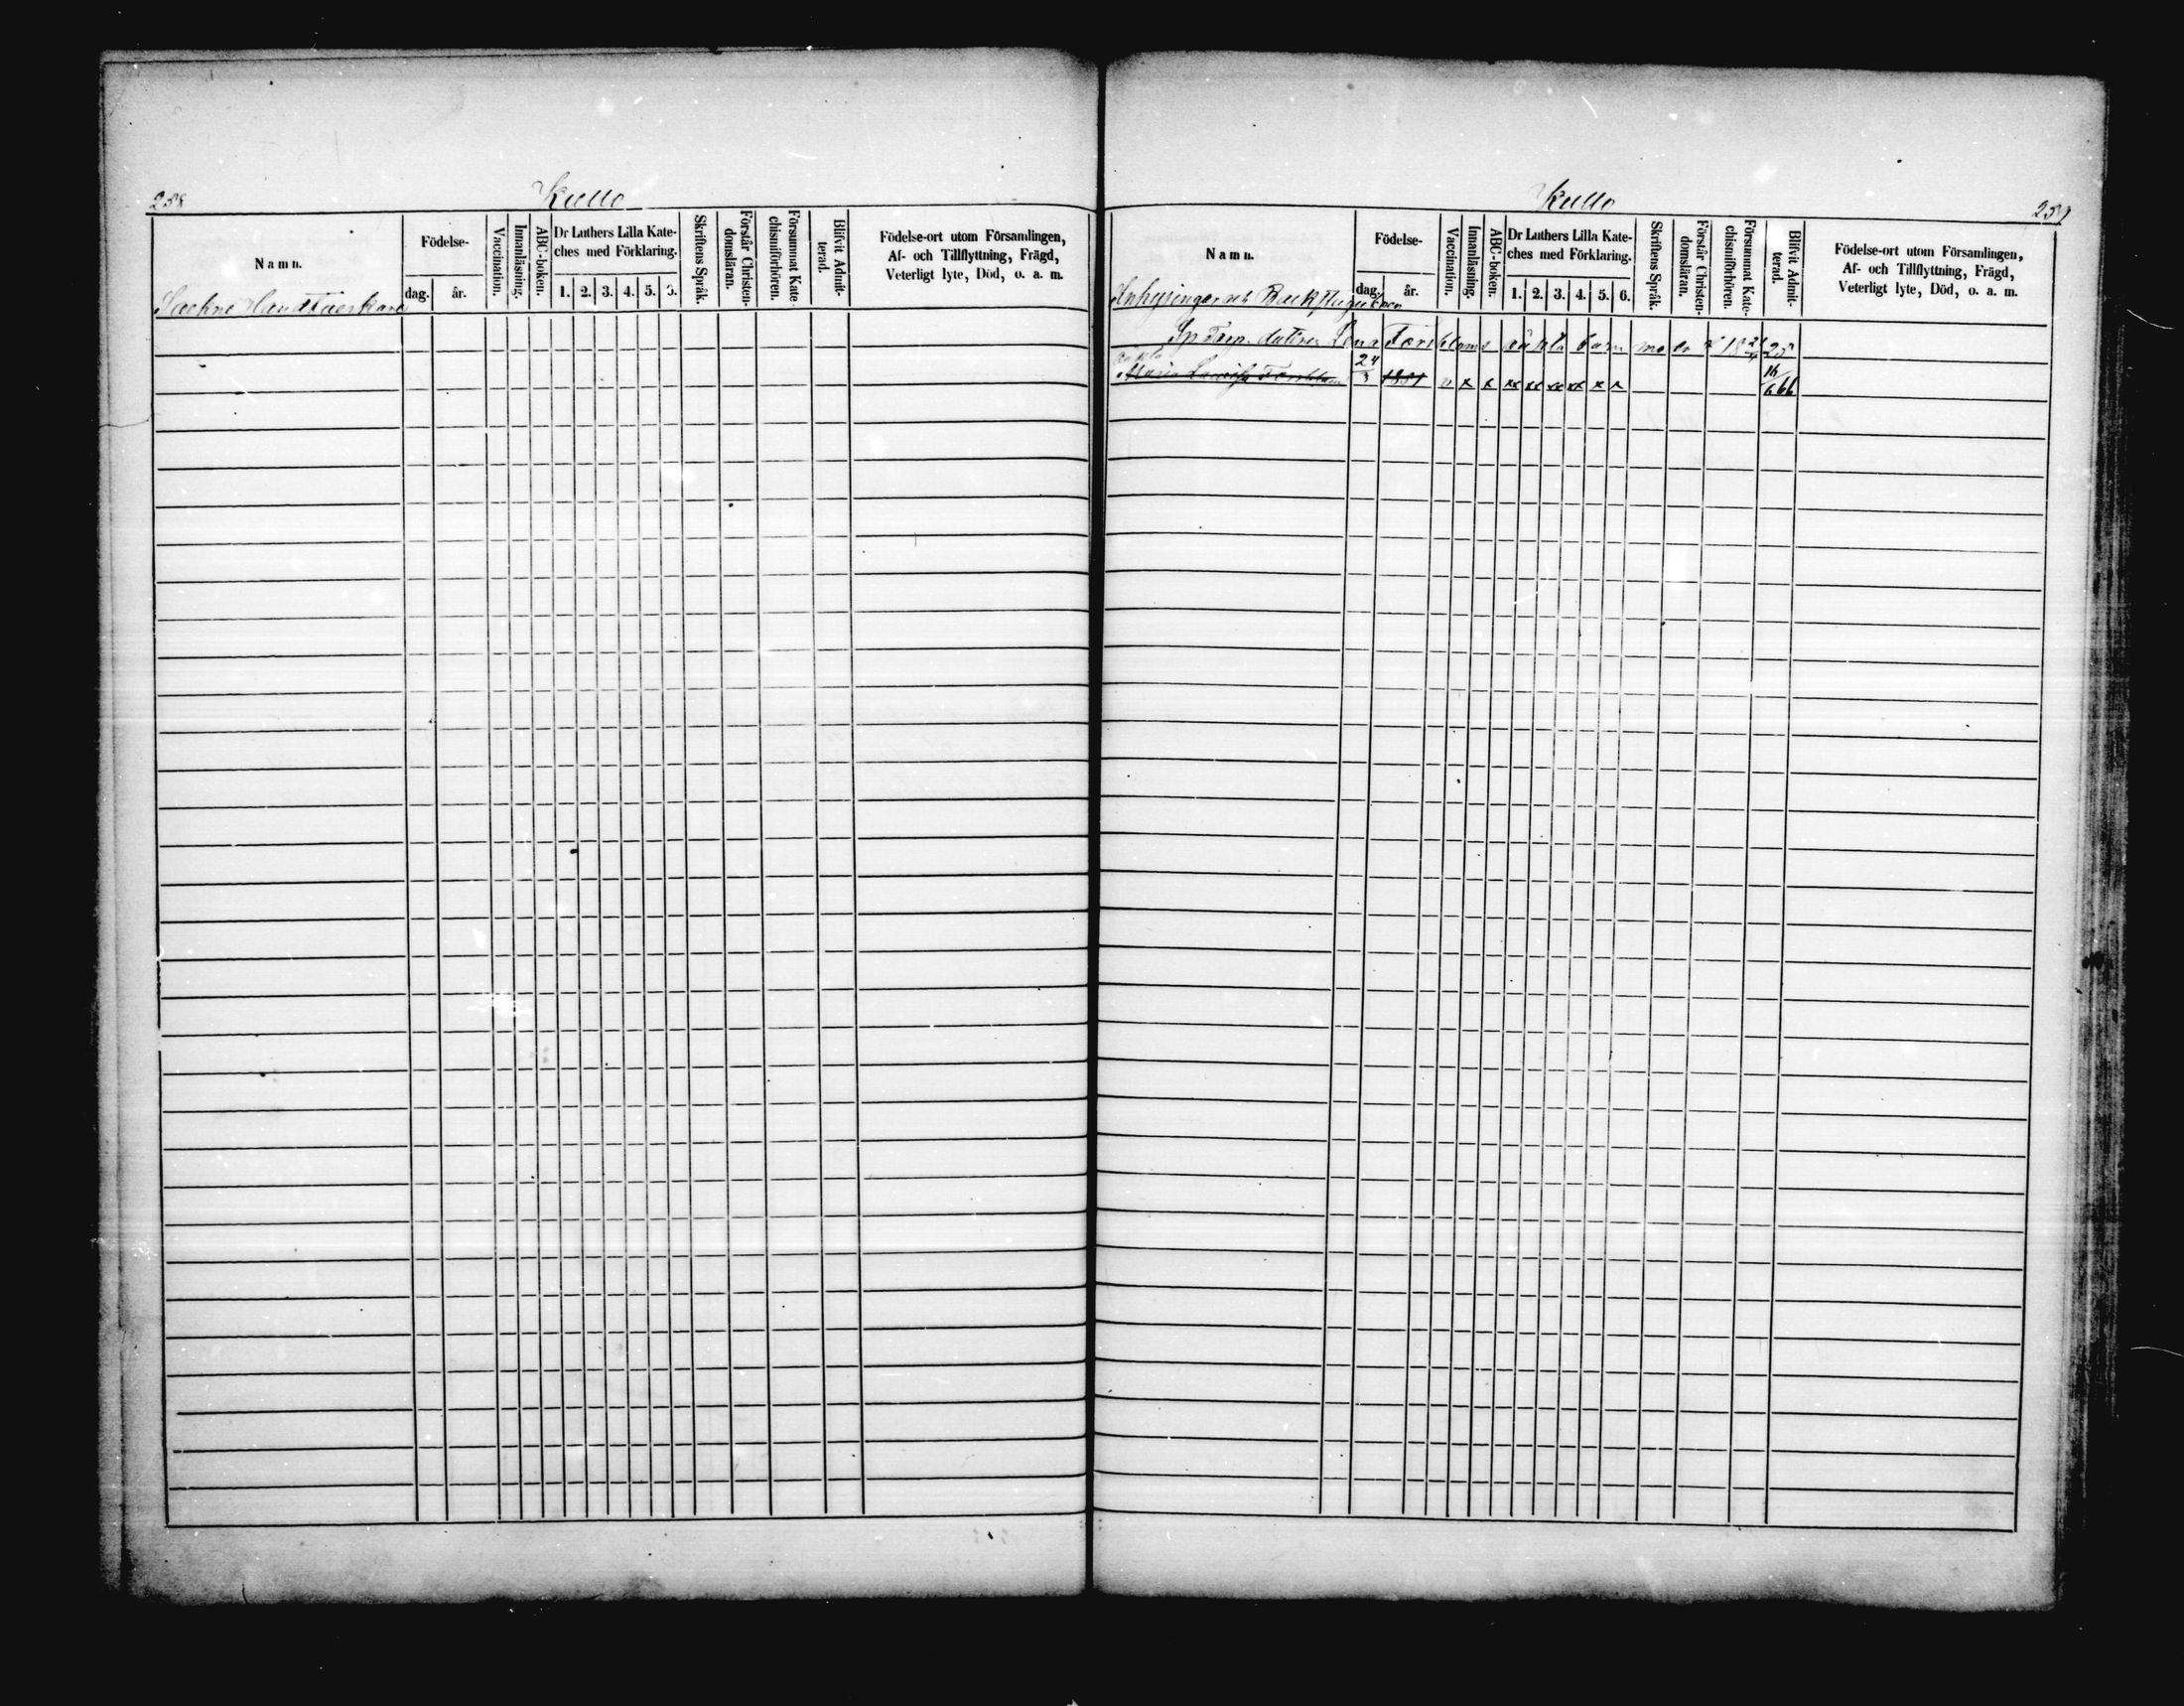 258
Kullo
Namn.
Födelse-
dag.
år.
Vaccination.
Innanläsning.
ABC-boken.
Dr Luthers Lilla Kate-
ches med Förklaring.
1. 2. 3. 4. 5. 6.
Skriftens Språk.
Förstår Christen-
domsläran.
Försummat Kate-
chismiförhören.
Blifvit Admit-
terad.
Födelse-ort utom Församlingen,
Af- och Tillflyttning, Frägd,
Veterligt lyte, Död, o. a. m.
Sockne Handtverkare
Kullo
259
Namn.
Födelse-
dag.
år.
Vaccination.
Innanläsning.
ABC-boken.
Dr Luthers Lilla Kate-
ches med Förklaring.
1. 2. 3. 4. 5. 6.
Skriftens Språk.
Förstår Christen-
domsläran.
Försummat Kate-
chismiförhören.
Blifvit Admit-
terad.
Födelse-ort utom Församlingen,
Af- och Tillflyttning, Frägd,
Veterligt lyte, Död, o. a. m.
Inhysingar och Backstuguboer
Lena Forsbloms oäkta barn
Maria Lovisa Forsblom 24/3 1851 v x x xx xx xx xx x x 16/6 66